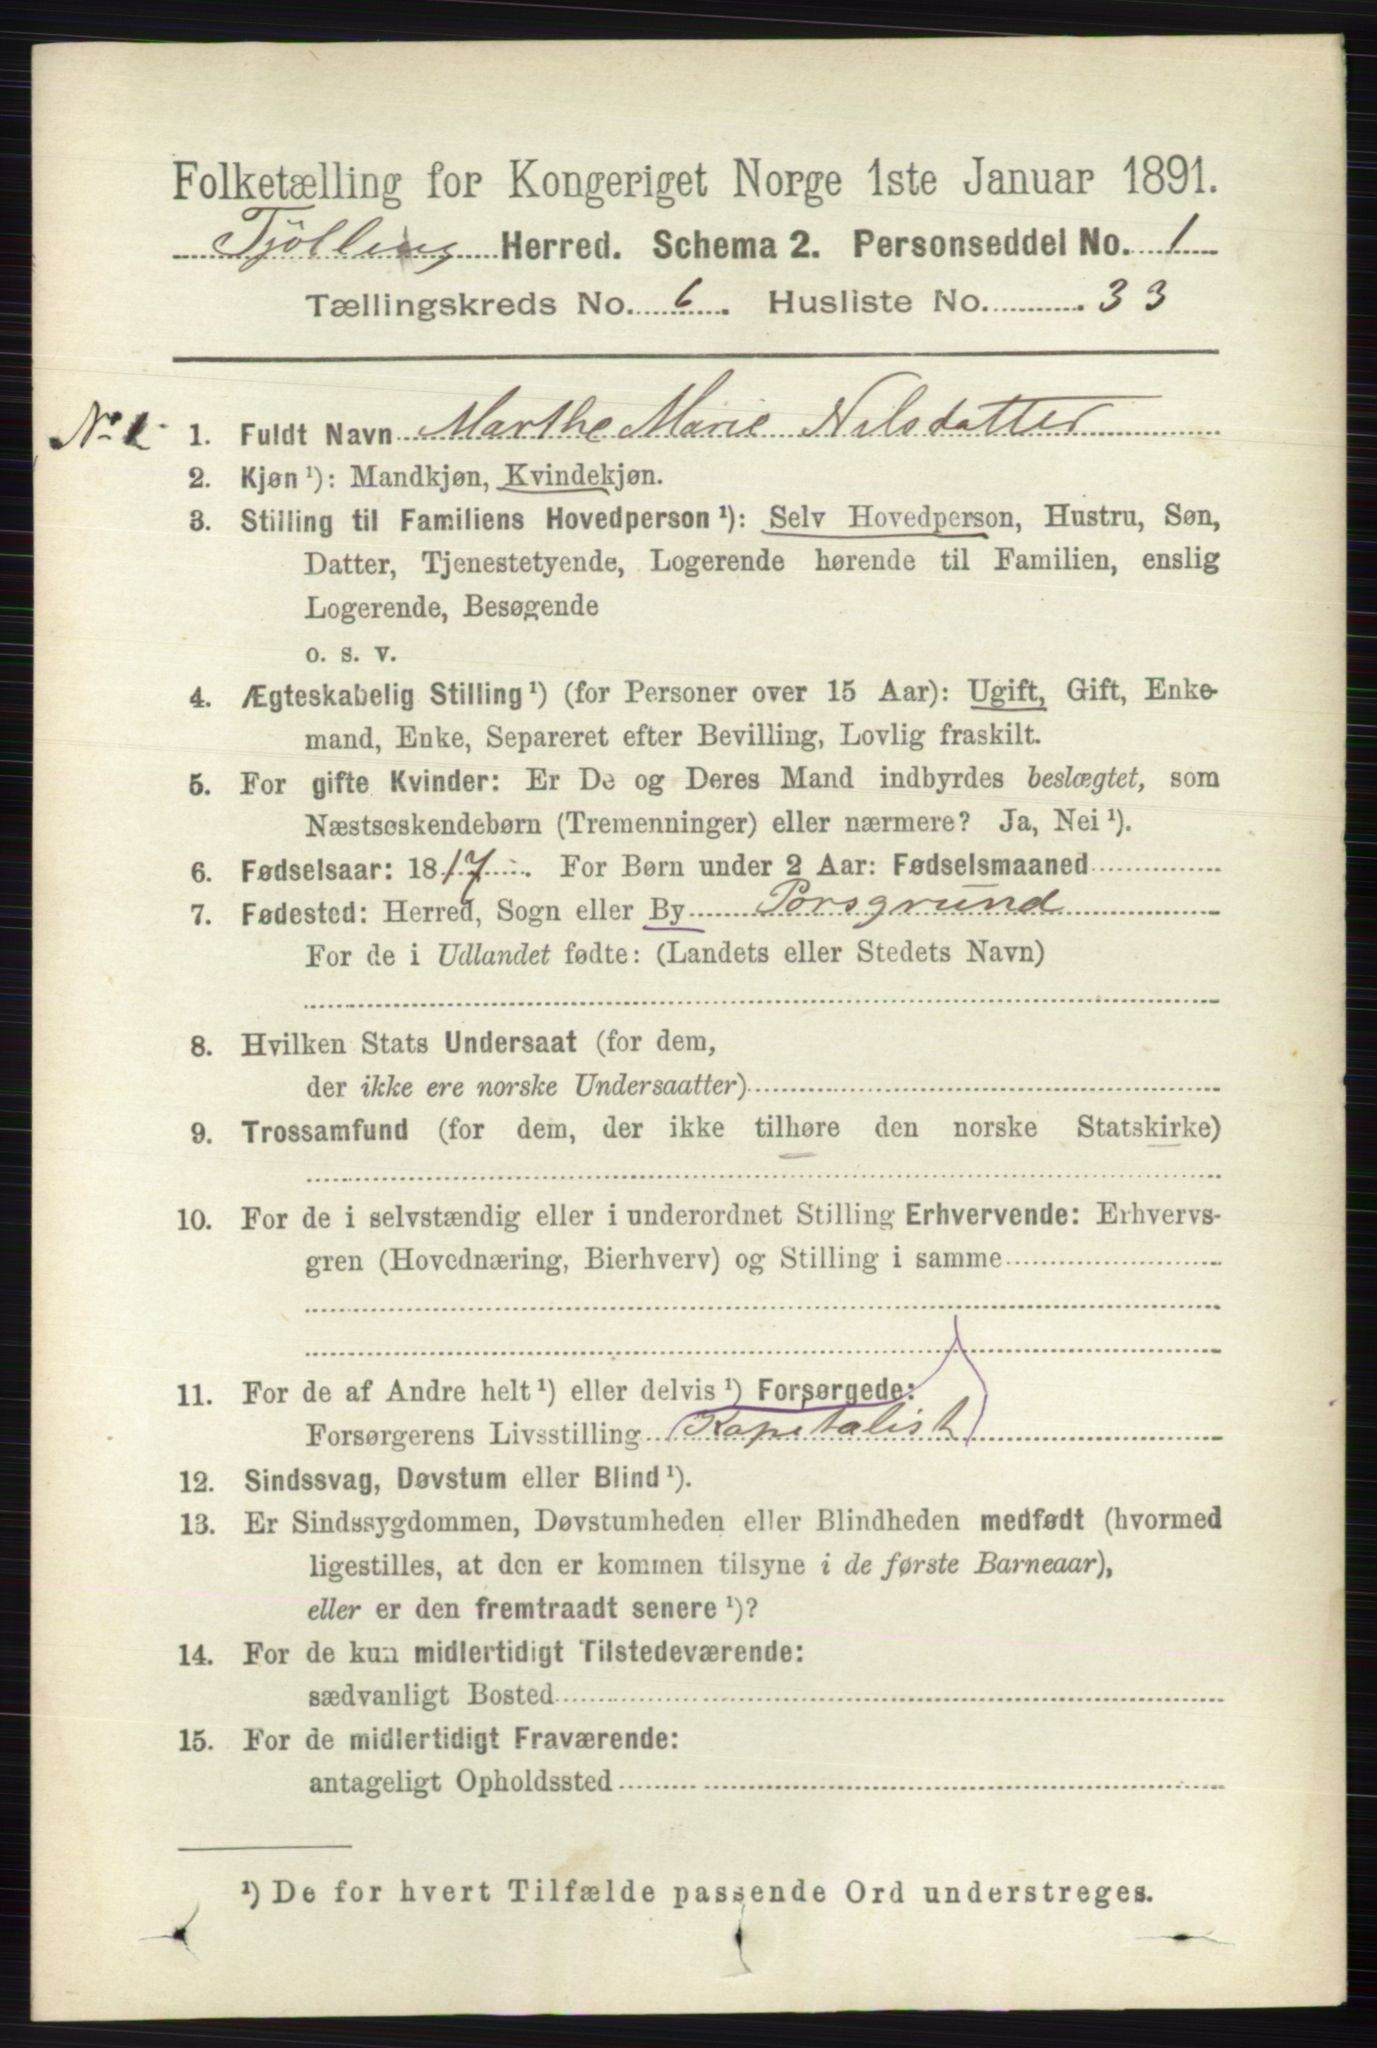 Folketælling for Kongeriget Norge 1ste Januar 1891.
Tjølling Herred. Schema 2. Personseddel No. 1
Tællingskreds No. 6. Husliste No. 33
No 1. 1. Fuldt Navn Marthe Marie Nilsdatter
2. Kjøn ¹): Mandkjøn, Kvindekjøn.
3. Stilling til Familiens Hovedperson ¹): Selv Hovedperson, Hustru, Søn,
Datter, Tjenestetyende, Logerende hørende til Familien, enslig
Logerende, Besøgende
o. s. v.
4. Ægteskabelig Stilling ¹) (for Personer over 15 Aar): Ugift, Gift, Enke-
mand, Enke, Separeret efter Bevilling, Lovlig fraskilt.
5. For gifte Kvinder: Er De og Deres Mand indbyrdes beslægtet, som
Næstsøskendebørn (Tremenninger) eller nærmere? Ja, Nei ¹).
6. Fødselsaar: 1817. For Børn under 2 Aar: Fødselsmaaned
7. Fødested: Herred, Sogn eller By Porsgrund
For de i Udlandet fødte: (Landets eller Stedets Navn)
8. Hvilken Stats Undersaat (for dem,
der ikke ere norske Undersaatter)
9. Trossamfund (for dem, der ikke tilhøre den norske Statskirke)
10. For de i selvstændig eller i underordnet Stilling Erhvervende: Erhvervs-
gren (Hovednæring, Bierhverv) og Stilling i samme
11. For de af Andre helt ¹) eller delvis ¹) Forsørgede:
Forsørgerens Livsstilling Kapitalist
12. Sindssvag, Døvstum eller Blind ¹).
13. Er Sindssygdommen, Døvstumheden eller Blindheden medfødt (hvormed
ligestilles, at den er kommen tilsyne i de første Barneaar),
eller er den fremtraadt senere ¹)?
14. For de kun midlertidigt Tilstedeværende:
sædvanligt Bosted
15. For de midlertidigt Fraværende:
antageligt Opholdssted
¹) De for hvert Tilfælde passende Ord understreges.